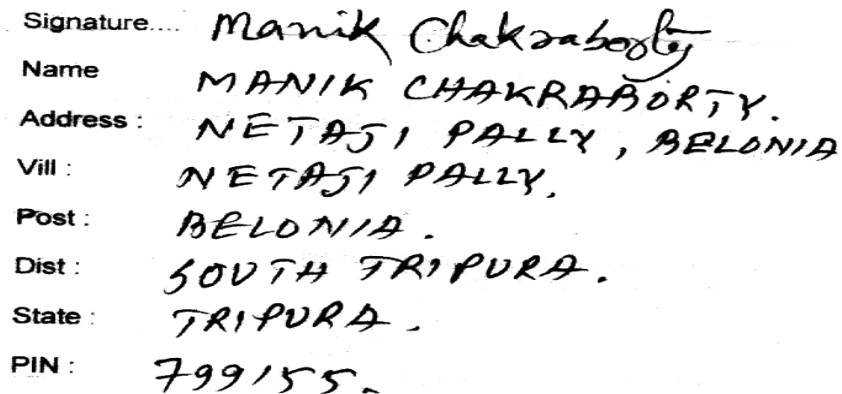 Signature.... Manik Chakraborty
Name MANIK CHAKRABORTY.
Address : NETAJI PALLY, BELONIA
Vill : NETAJI PALLY.
Post : BELONIA.
Dist : SOUTH TRIPURA.
State : TRIPURA.
PIN : 799155.